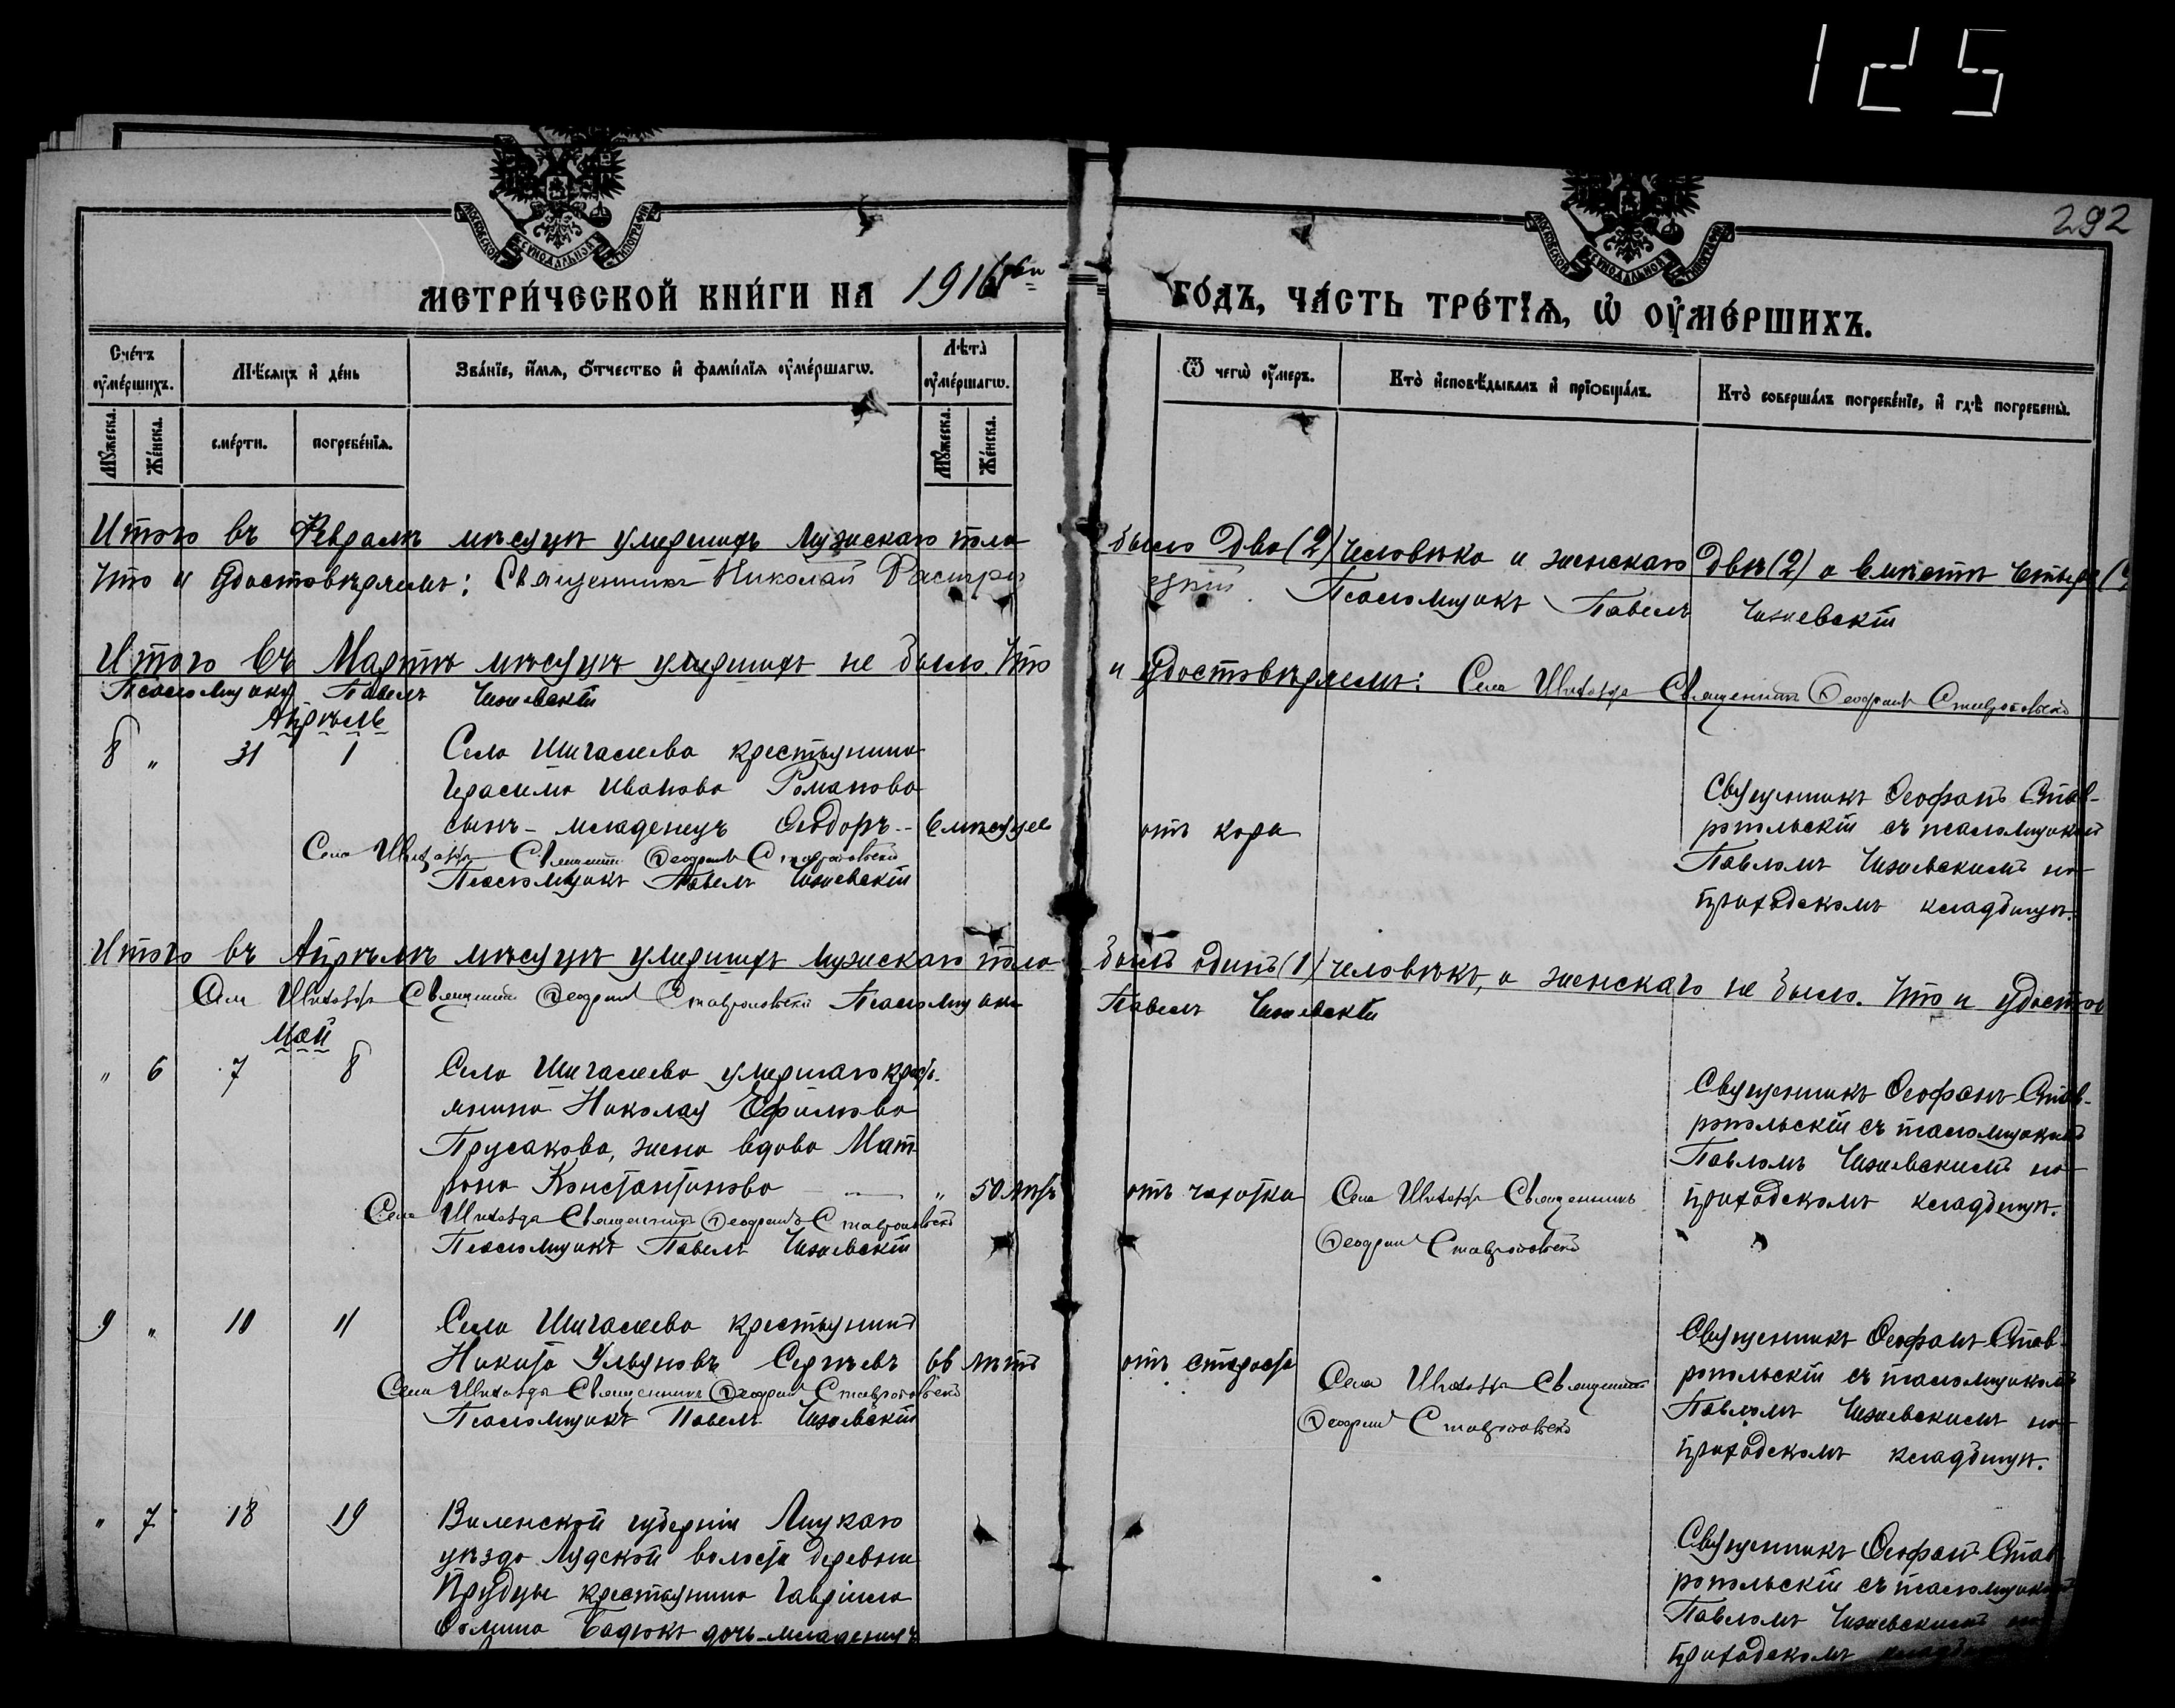 125
292
МОСКОВСКОЙ СУНОДАЛЬНОЙ ТИПОГРАФІИ
МОСКОВСКОЙ СУНОДАЛЬНОЙ ТИПОГРАФІИ
МЕТРИ́ЧЕСКОЙ КНИ́ГИ НА 1916 ГО́ДЪ, ЧА́СТЬ ТРЕ́ТІѦ, Ѡ҆ ОУ҆МЕ́РШИХЪ.
Сче́тъ оу҆ме́ршихъ.
Мѣ́сяцъ и҆ де́нь
Зва́нїе, и҆́мѧ, ѻ҆́тчество и҆ фами́лїѧ оу҆ме́ршагѡ.
Лѣ́та оу҆ме́ршагѡ.
Ѿ чегѡ̀ оу҆́меръ.
Кто̀ и҆сповѣ́дывалъ и҆ прїѡбща́лъ.
Кто̀ соверша́лъ погребе́нїе, и҆ гдѣ̀ погребены̀.
Му́жеска.
Же́нска.
сме́рти.
погребе́нїѧ.
Му́жеска.
Же́нска.
Итого въ Февралѣ мѣсяцѣ умершихъ мужскаго пола было два (2) человѣка и женскаго двѣ (2) а вмѣстѣ четыре
Что и удостовѣряемъ: Священникъ Николай Псаломщикъ Павелъ Чижевскій
Итого въ Мартѣ мѣсяцѣ умершихъ не было. Что и удостовѣряемъ: Села Священникъ Феофанъ Ставропольскій
Псаломщикъ Павелъ Чижевскій
Апрѣль
8 " 31 1 Села Шигалеева крестьянина
Герасима Иванова Романова
сынъ - младенецъ Ѳеодоръ - 6 мѣсяцев
отъ кори
Священникъ Ѳеофанъ Став-
ропольскій съ псаломщикомъ
Павломъ Чижевскимъ на
приходскомъ кладбищѣ.
Села Священникъ Феофанъ Ставропольскій
Псаломщикъ Павелъ Чижевскій
Итого въ Апрѣлѣ мѣсяцѣ умершихъ мужскаго пола былъ одинъ (1) человѣкъ, а женскаго не было. Что и удостов
Села Священникъ Феофанъ Ставропольскій Псаломщикъ Павелъ Чижевскій
Май
" 6 7 8 Села Шигалеева умершаго кресть-
янина Николая Ефимова
Прусакова, жена вдова Мат
рона Константинова " 50 лѣтъ
отъ чахотки
Села Священникъ
Феофанъ Ставропольскій
Священникъ Ѳеофанъ Став-
ропольскій съ псаломщикомъ
Павломъ Чижевскимъ на
приходскомъ кладбищѣ.
Села Священникъ Феофанъ Ставропольскій
Псаломщикъ Павелъ Чижевскій
9 " 10 11 Села Шигалеева крестьянинъ
Никита Ульяновъ Сергѣевъ 66 лѣтъ
отъ старости
Села Священникъ
Феофанъ Ставропольскій
Священникъ Ѳеофанъ Став-
ропольскій съ псаломщикомъ
Павломъ Чижевскимъ на
приходскомъ кладбищѣ.
Села Священникъ Феофанъ Ставропольскій
Псаломщикъ Павелъ Чижевскій
" 7 18 19 Виленской губерніи Лидскаго
уѣзда Лидской волости деревни
Прудцы крестьянина Гавріила
Бадюкъ дочь - младенецъ
Священникъ Ѳеофанъ Став
ропольскій съ псаломщикомъ
Павломъ Чижевскимъ на
приходскомъ